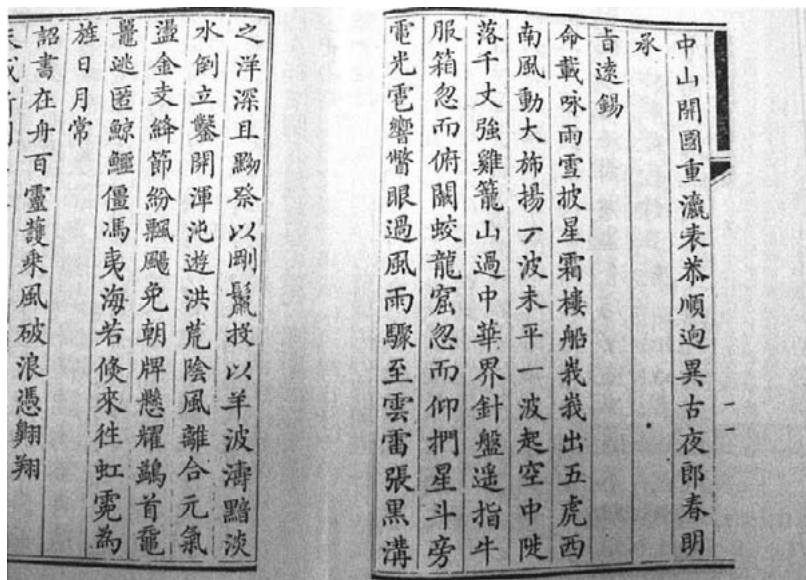 中山開國重瀛表恭順逈異古夜郎春明
承
旨遠錫
命載咏雨雪披星霜樓船峩峩出五虎西
南風動大斾揚一波未平一波起空中陡
落千丈強雞籠山過中華界針盤遥指牛
服箱忽而俯闞蛟龍窟忽而仰捫星斗旁
電光雹響瞥眼過風雨驟至雲雷張黑溝
之洋深且黝祭以剛鬣投以羊波濤黯淡
水倒立鑿開渾沌遊洪荒陰風離合元氣
盪金支絳節紛飄颺免朝牌懸耀鷁首黿
鼉逃匿鯨鱷僵馮夷海若倏來徃虹霓為
旌日月常
詔書在舟百靈護乘風破浪憑翺翔